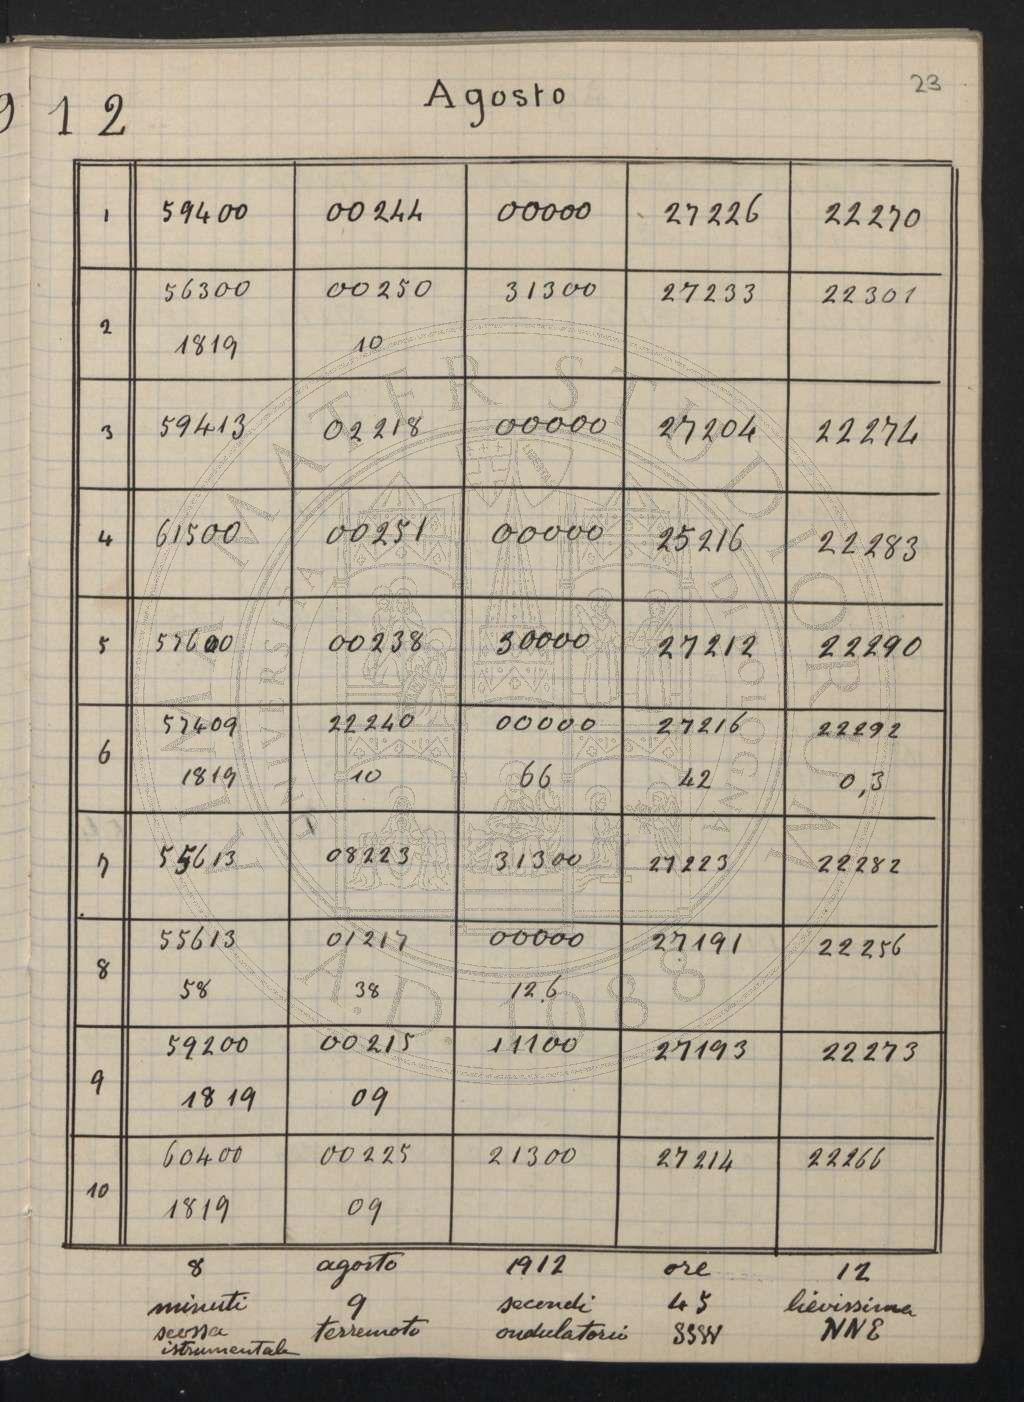 912
Agosto
23
1 59400 00244 00000 27226 22270
56300 00250 31300 27233 22301
2
1819 10
3 59413 02218 00000 27204 22274
4 61500 00251 00000 25216 22283
5 57600 00238 30000 27212 22290
57409 22240 00000 27216 22292
6
1819 10 66 42 0,3
7 55613 08223 31300 27223 22282
55613 01217 00000 27191 22256
8
58 38 12.6
59200 00215 11100 27193 22273
9
1819 09
60400 00225 21300 27214 22266
10
1819 09
8 agosto 1912 ore 12
minuti 9 secondi 45 lievissima
scossa terremoto ondulatorio SSW NNE
istrumentale
ALMA MATER STUDIORUM
UNIVERSITÀ DI BOLOGNA
A.D. 1088